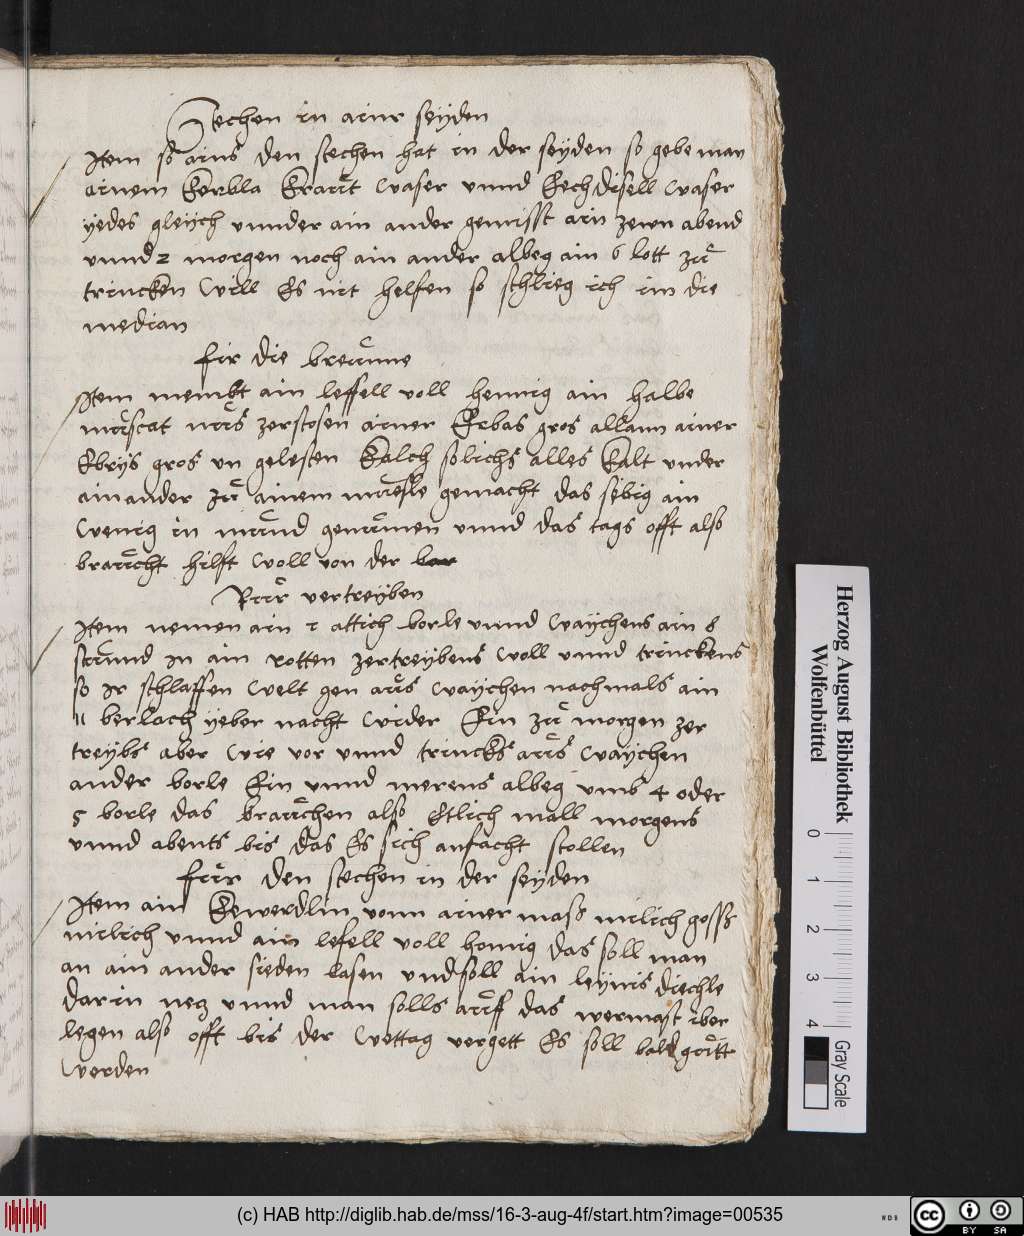 Stechen in ainr seyden
Item so ains den stechen hat in der seyden so gebe man
ainem Kerbla Krautt Waser vnnd Eechdisell Waser
yedes gleych vnnder ain ander gemisst ain zewn abend
vnnd 2 morgen noch ain ander albeg ain 6 lott zů
trincken Will Es nit helfen so schlieg ich im die
median
fir die breůnne
Item nembt ain leffell voll hennig ain halbe
můscat nůs zerstosen ainer Erbas gros allaun ainer
Erbys gros vn gelesten Kalch solichs alles Kalt vnder
ain ander zů ainem můesle gemacht das selbig ain
Wenig in můnd genůmen vnnd das tags offt also
braůcht hilft woll von der
Růr vertreyben
Item nemen ain 1 attich borle vnnd Waychens ain 6
stůnnd In ain rotten zertreybens Woll vnnd trinckens
so Ir schlaffen Welt gen aůs Waychen nachmals ain
11 berlach yeber nacht Wider Ein zů morgen zer
treybs aber Wie vor vnnd trincks aůs Waychen
ander borle Ein vnnd merens albeg vmb 4 oder
5 borle das braůchen also Etlich mall morgens
vnnd abents bis das Es sich anfacht stollen
fůr den stechen in der seyden
Item ain vonn ainer mass milich
milich vnnd ain lefell voll honig das soll man
an ain ander sieden lasen vnd soll ain leynis diechle
darin nez vnnd man solls aůff das wermast iber
legen also offt bis der Wettag vergett Es soll bald
Werden
Herzog August Bibliothek
Wolfenbüttel
0 1 2 3 4
Gray Scale
(c) HAB http://diglib.hab.de/mss/16-3-aug-4f/start.htm?image=00535
WDB
cc BY SA